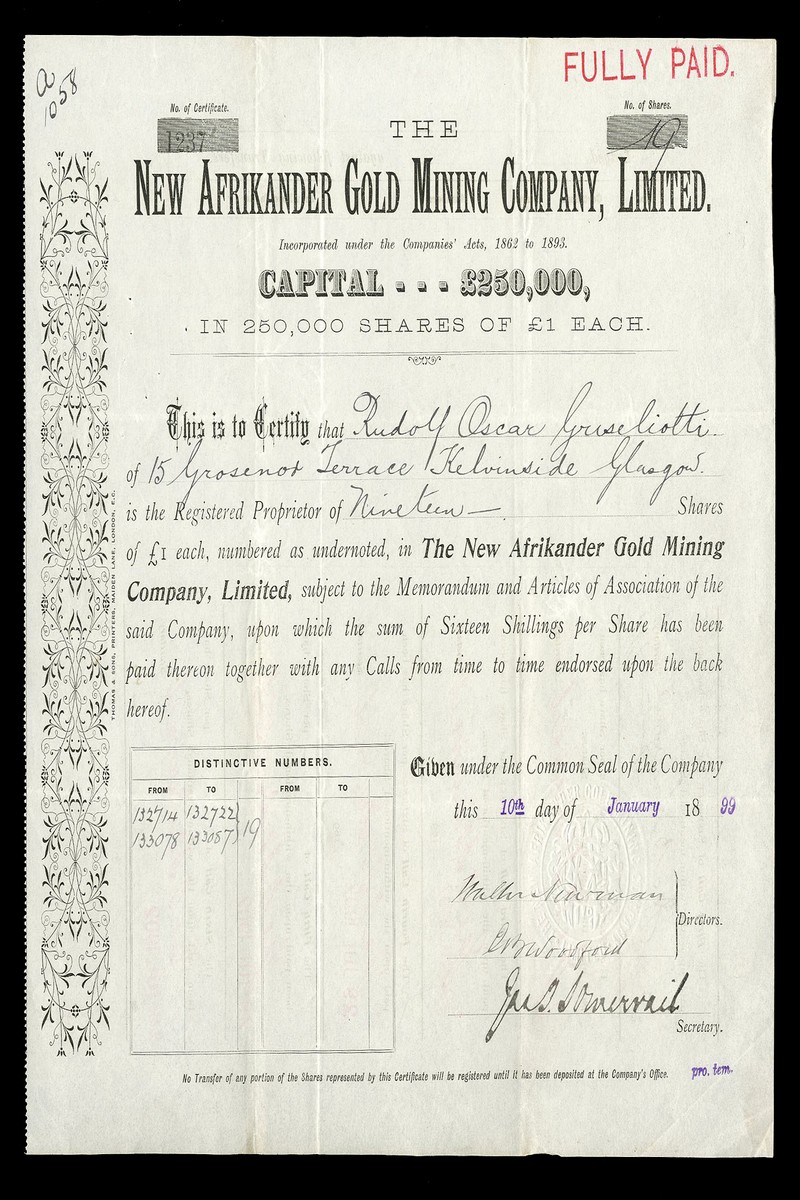 a
1058
FULLY PAID.
No. of Certificate.
1237
No. of Shares.
19
THE
NEW AFRIKANDER GOLD MINING COMPANY, LIMITED.
Incorporated under the Companies' Acts, 1862 to 1893.
CAPITAL - - - £250,000,
IN 250,000 SHARES OF £1 EACH.
This is to Certify that Rudolf Oscar
of 15 Grosenor Terrace Kelvinside Glasgow.
is the Registered Proprietor of Nineteen — Shares
of £1 each, numbered as undernoted, in The New Afrikander Gold Mining
Company, Limited, subject to the Memorandum and Articles of Association of the
said Company, upon which the sum of Sixteen Shillings per Share has been
paid thereon together with any Calls from time to time endorsed upon the back
hereof.
THOMAS & SONS, PRINTERS, MAIDEN LANE, LONDON, E.C.
DISTINCTIVE NUMBERS.
FROM TO FROM TO
132714 132722
133078 133087 } 19
Given under the Common Seal of the Company
this 10th day of January 1899
Walter Newman
Woodford
Directors.
Jas. Somervail
Secretary.
pro. tem.
No Transfer of any portion of the Shares represented by this Certificate will be registered until it has been deposited at the Company's Office.